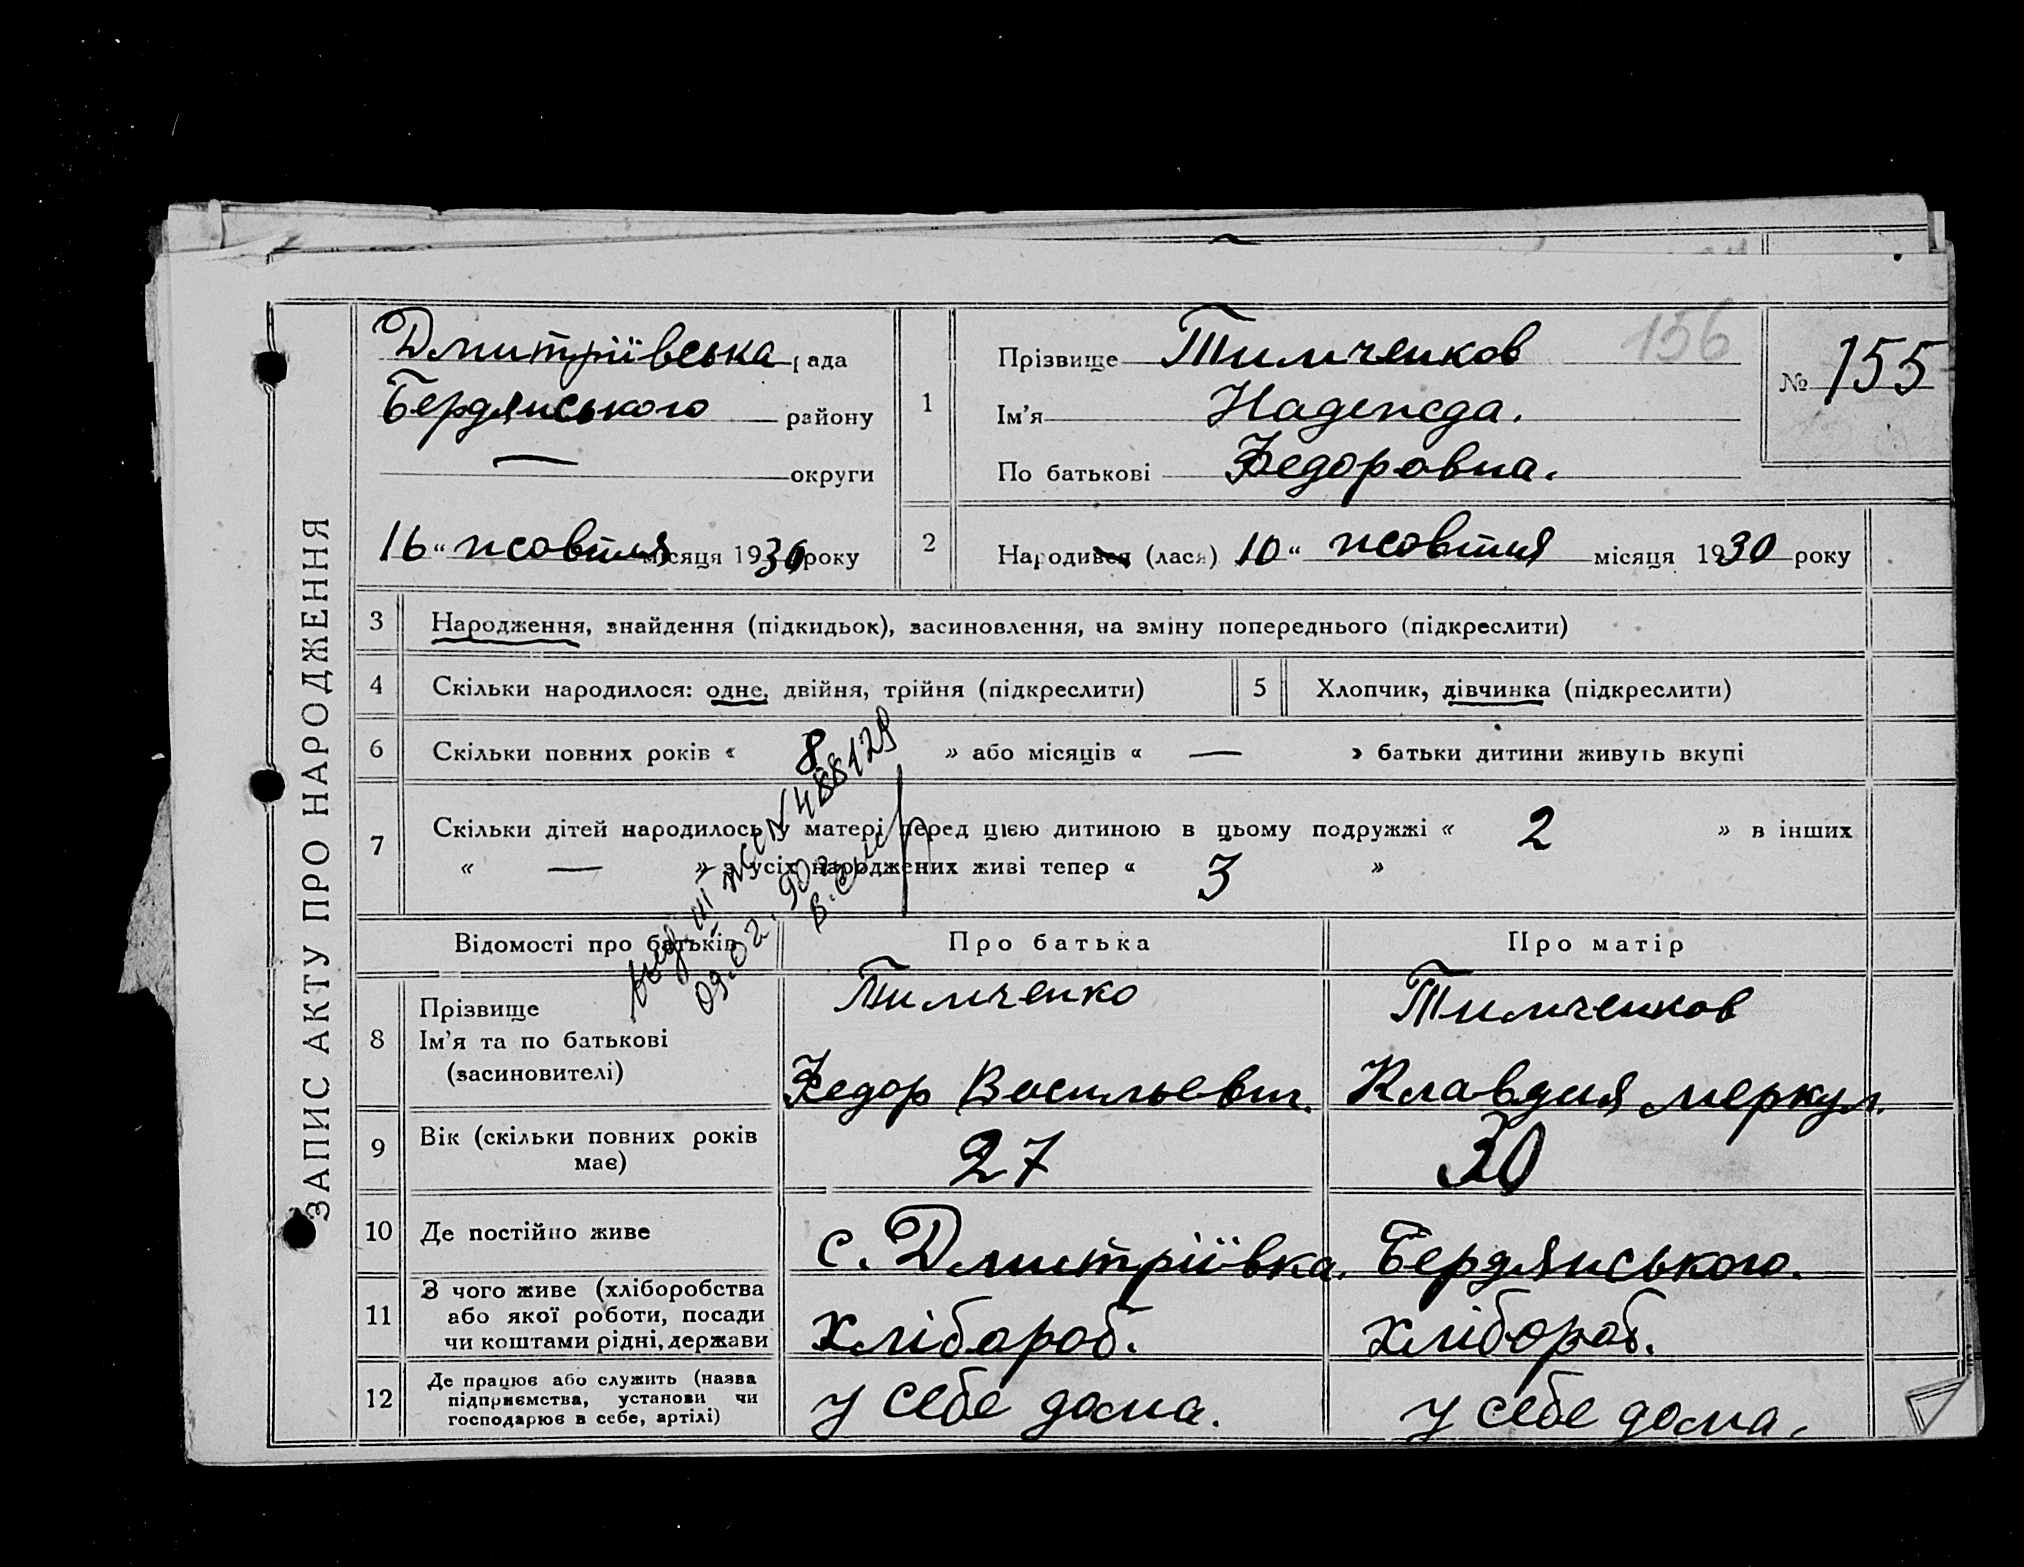 ЗАПИС АКТУ ПРО НАРОДЖЕННЯ
Дмитріївська рада
Бердянського району
— округи
16 " жовтня місяця 1930 року
1
Прізвище Тимченков
Ім'я Надежда.
По батькові Федоровна.
156
№ 155
2
Народився (лася) 10 " жовтня місяця 1930 року
3 Народження, знайдення (підкидьок), засиновлення, на зміну попереднього (підкреслити)
4 Скільки народилося: одне, двійня, трійня (підкреслити)
5 Хлопчик, дівчинка (підкреслити)
6 Скільки повних років « 8 » або місяців « — » батьки дитини живуть вкупі
7 Скільки дітей народилось у матері перед цією дитиною в цьому подружжі « 2 » в інших
« — » з усіх народжених живі тепер « 3 »
III № 488129
09.02.90
Відомості про батьків Про батька Про матір
8 Прізвище Тимченко Тимченков
Ім'я та по батькові
(засиновителі) Федор Васильевич. Клавдия Меркул.
9 Вік (скільки повних років
має) 27 30
10 Де постійно живе с. Дмитріївка. Бердянського.
11 З чого живе (хліборобства
або якої роботи, посади
чи коштами рідні, держави Хлібороб. Хлібороб.
12 Де працює або служить (назва
підприємства, установи чи
господарює в себе, артілі) у себе дома. у себе дома.